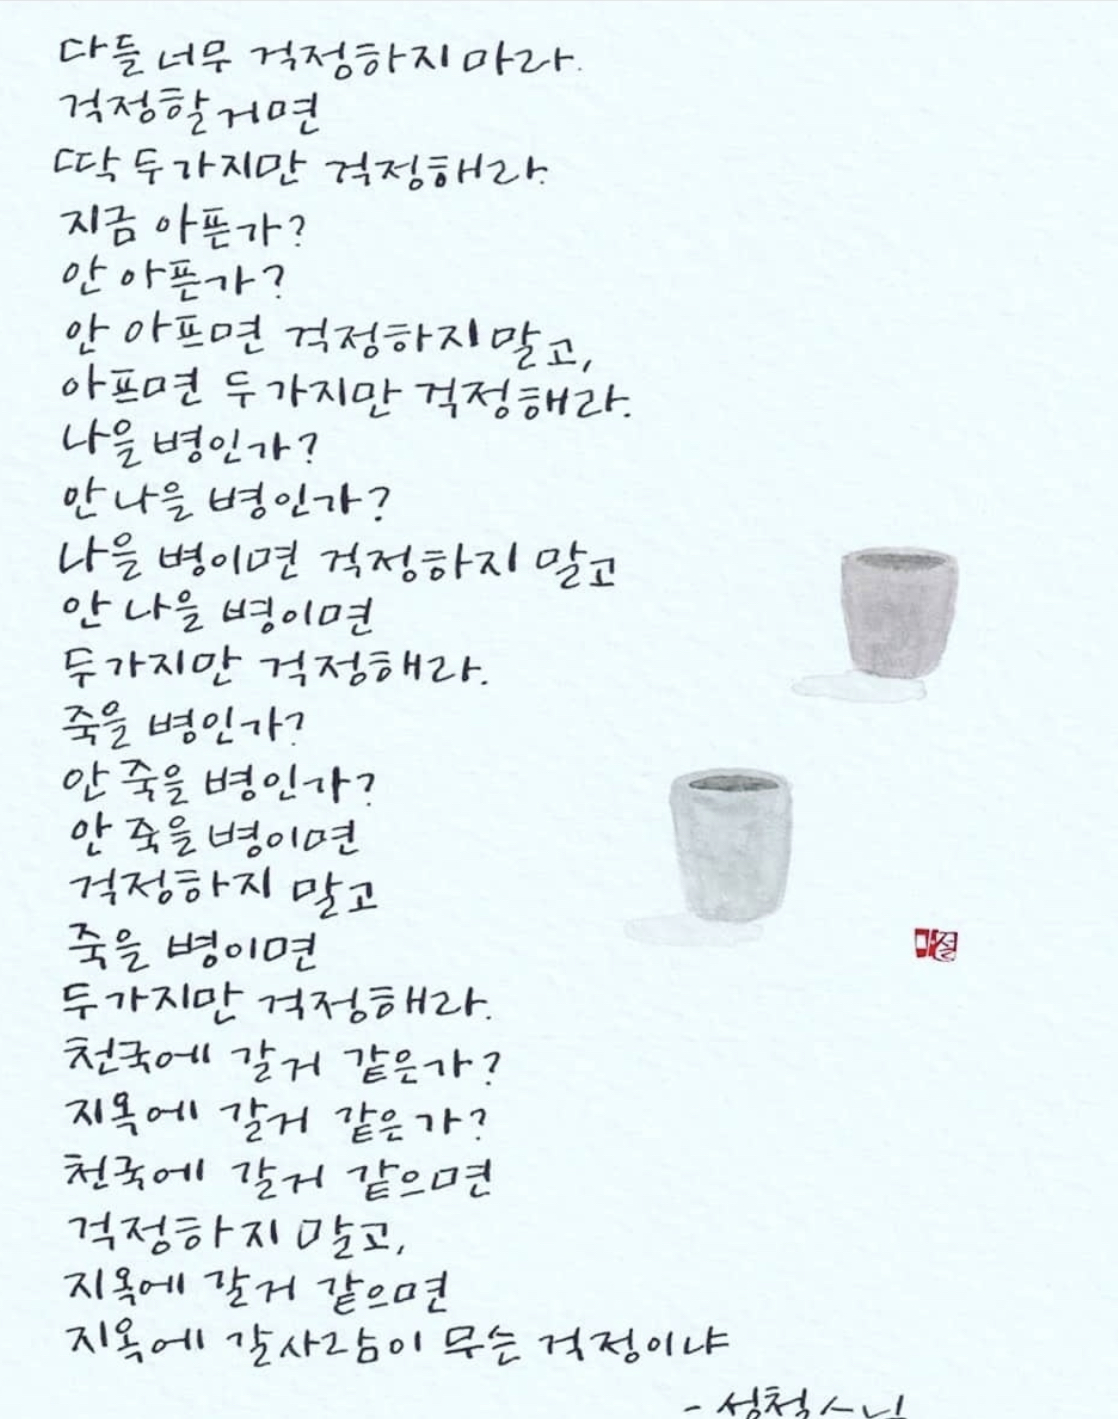 다들 너무 걱정하지 마라.
걱정할 거면
딱 두가지만 걱정해라.
지금 아픈가?
안 아픈가?
안 아프면 걱정하지 말고,
아프면 두가지만 걱정해라.
나을 병인가?
안 나을 병인가?
나을 병이면 걱정하지 말고
안 나을 병이면
두가지만 걱정해라.
죽을 병인가?
안 죽을 병인가?
안 죽을 병이면
걱정하지 말고
죽을 병이면
두가지만 걱정해라.
천국에 갈거 같은가?
지옥에 갈거 같은가?
천국에 갈거 같으면
걱정하지 말고,
지옥에 갈거 같으면
지옥에 갈 사람이 무슨 걱정이냐
- 성철스님